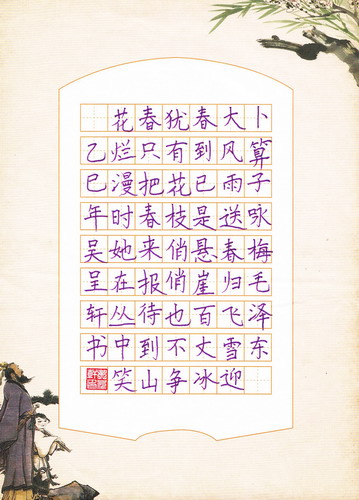 卜算子咏梅毛泽东
大风雨送春归飞雪迎
春到已是悬崖百丈冰
犹有花枝俏俏也不争
春只把春来报待到山
花烂漫时她在丛中笑
乙巳年吴呈轩书